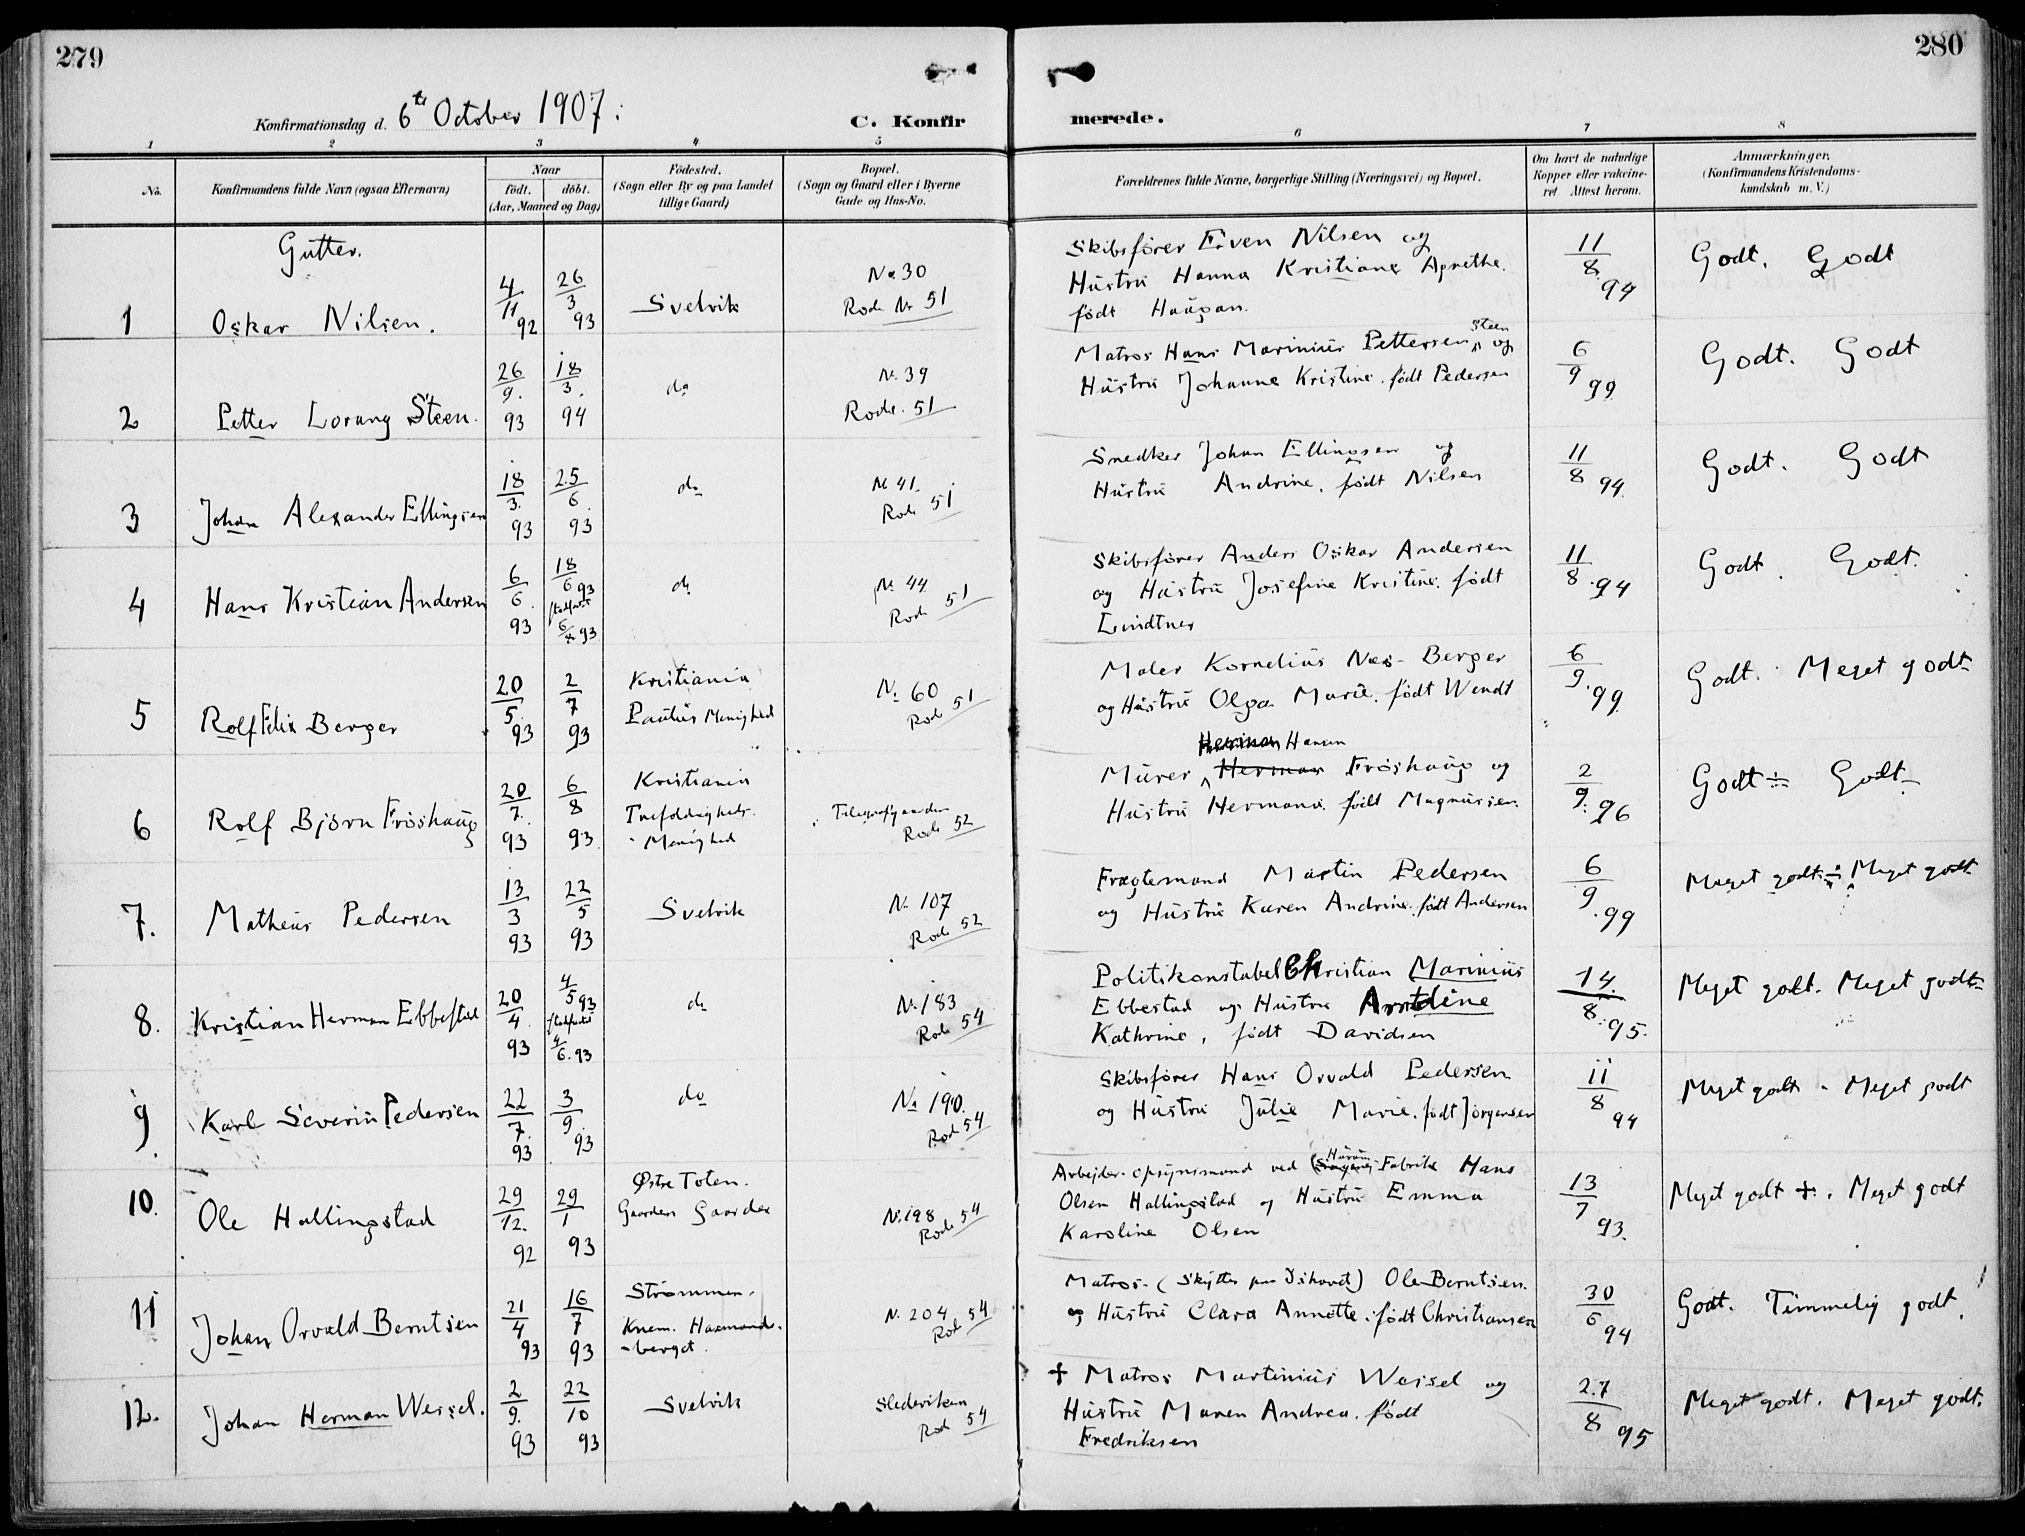 279
280
Konfirmationsdag d. 6te October 1907.
C. Konfir
merede.
1 2 3 4 5 6 7 8
No.
Konfirmandens fulde Navn (ogsaa Efternavn)
Naar
födt. döbt.
(Aar, Maaned og Dag)
Födested.
(Sogn eller By og paa Landet
tillige Gaard)
Bopæl.
(Sogn og Gaard eller i Byerne
Gade og Hus-No.
Forældrenes fulde Navne, borgerlige Stilling (Næringsvei) og Bopæl.
Om havt de naturlige
Kopper eller vakcine-
ret Attest herom.
Anmærkninger.
(Konfirmandens Kristendoms-
kundskab m. V.)
Gutter.
1 Oskar Nilsen. 4/11 92 26/3 93 Svelvik No 30
Rode Nr 51
Skibsfører Even Nilsen og
Hustru Hanna Kristiane Agnethe.
født Haugan.
11/8 94 Godt. Godt
2 Petter Lorang Steen. 26/9 93 18/3 94 do N. 39
Rode. 51
Matros Hans Marinius Pettersen Steen og
Hustru Johanne Kristine. født Pedersen
6/9 99 Godt. Godt
3 Johan Alexander Ellingsen 18/3 93 25/6 93 do N. 41.
Rode 51
Snedker Johan Ellingsen og
Hustru Andrine. født Nilsen
11/8 94. Godt. Godt
4 Hans Kristian Andersen 6/6 93 18/6 93 stadfæstet 6/8 93 do N. 44
Rode 51
Skibsfører Anders Oskar Andersen
og Hustru Josefine Kristine. født
Lindtner
11/8 94 Godt. Godt.
5 Rolf Felix Berger 20/5 93 2/7 93 Kristiania
Paulus Menighed
N. 60
Rode 51
Maler Kornelius Næs-Berger
og Hustru Olga Marie. født Wendt
6/9 99 Godt. Meget godt
6 Rolf Bjørn Frøshaug 20/7 93 6/8 93 Kristiania
Trefoldigheds-
Menighed
Telegrafgaarden
Rode 52
Murer Hansen Frøshaug og
Hustru Hermana. født Magnussen.
2/9 96 Godt ÷ Godt
7. Matheus Pedersen 13/3 93 22/5 93 Svelvik N. 107
Rode 52
Fragtemand Martin Pedersen
og Hustru Karen Andrine. født Andersen
6/9 99 Meget godt ÷ Meget godt
8. Kristian Herman Ebbestad 20/4 93 4/5 93 stadfæstet 4/6. 93 do N. 183
Rode 54
Politikonstabel Christian Marinius
Ebbestad og Hustru
Kathrine, født Davidsen
14/8 95. Meget godt. Meget godt
9. Karl Severin Pedersen 22/7 93 3/9 93 do No 190.
Rode 54
Skibsfører Hans Orvald Pedersen
og Hustru Julie Marie. født Jørgensen
11/8 94 Meget godt. Meget godt
10. Ole Hallingstad 29/12 92 29/1 93 Østre Toten.
Gaarden Gaarder
N. 198
Rode 54
Arbejder-opsynsmand ved Fabrik Hans
Olsen Hallingstad og Hustru Emma
Karoline Olsen
13/7 93. Meget godt +. Meget godt
11 Johan Orvald Berntsen 21/4 93 16/7 93 Strømmen.
Knem. Haxmand-
berget.
N. 204
Rode 54
Matros- (Skytter paa Ishavet) Ole Berntsen.
og Hustru Clara Annette. født Christiansen
30/6 94 Godt. Temmelig godt.
12. Johan Herman Wessel. 2/9 93 22/10 93 Svelvik Slederviken
Rode 54
+ Matros Martinius Wessel og
Hustru Maren Andrea. født
Fredriksen
27/8 95 Meget godt. Meget godt.